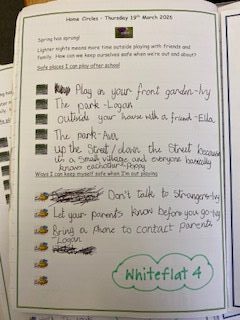 Home Circles - Thursday 19th March 2026
Spring has sprung!
Lighter nights means more time outside playing with friends and
family. How can we keep ourselves safe when we're out and about?
Safe places I can play after school
Play in your front garden-Ivy
The park-Logan
outside your house with a friend-Ella
The park-Ava
up the Street/down the Street because
its a Small village and everyone basically
knows eachother-Poppy
Ways I can keep myself safe when I'm out playing
Don't talk to Strangers-Ivy
Let your parents know before you go-Ivy
Bring a Phone to contact parents
Logan
Whiteflat 4